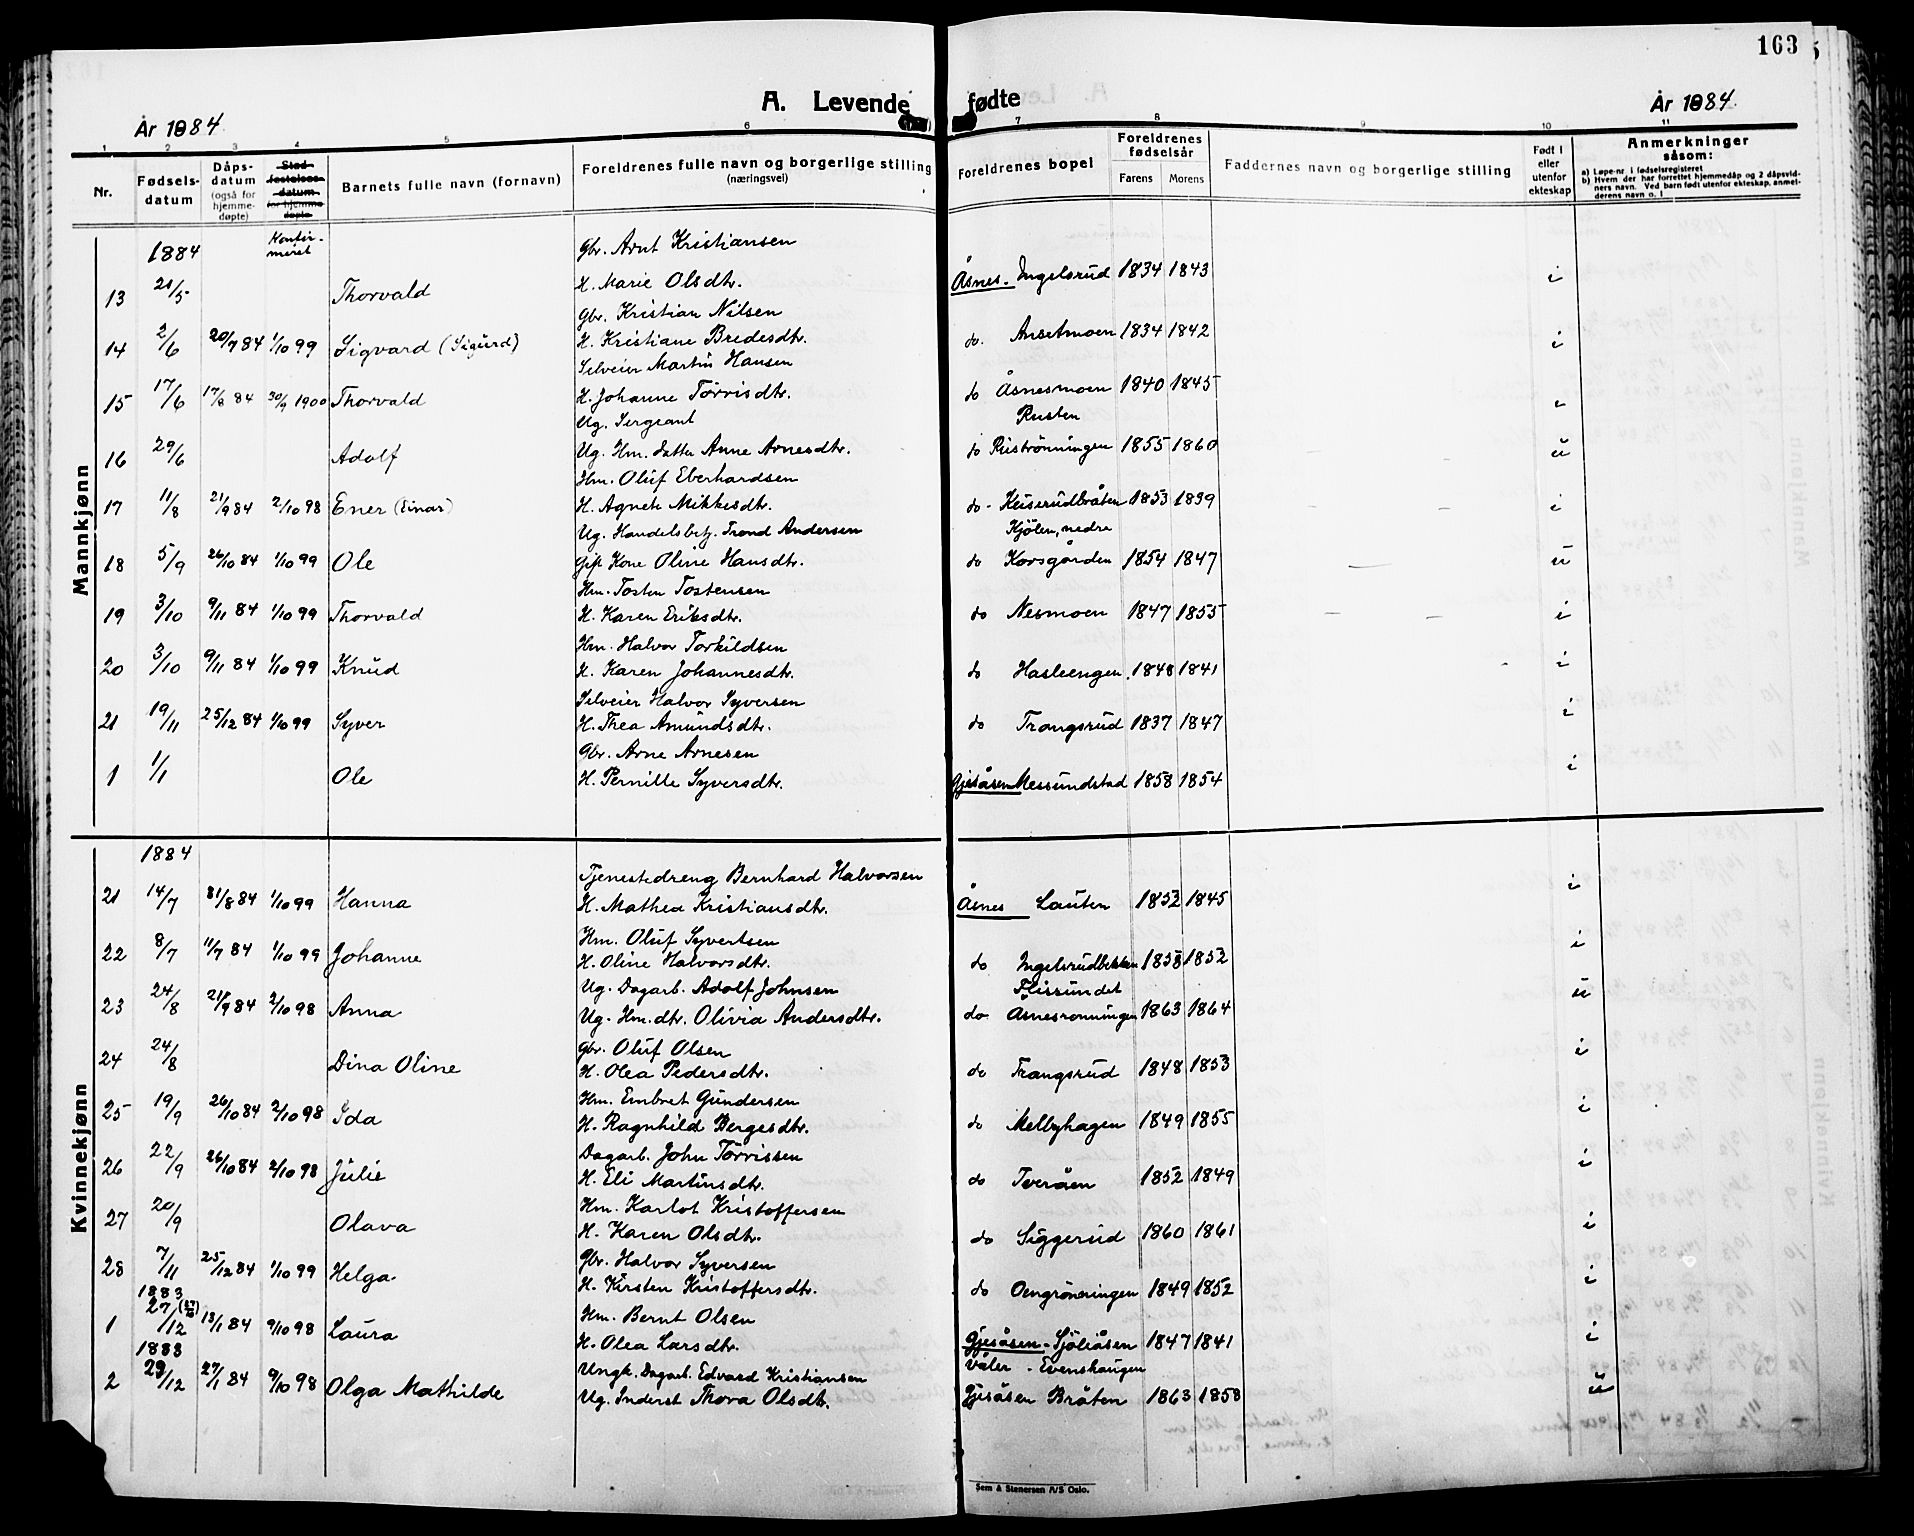 163
A. Levende fødte
År 1884.
År 1884.
1 2 3 4 5 6 7 8 9 10 11
Nr. Fødselsdatum Dåpsdatum (også for hjemmedøpte) Stadfestelsesdatum for hjemmedøpte Barnets fulle navn (fornavn) Foreldrenes fulle navn og borgerlige stilling (næringsvei) Foreldrenes bopel Foreldrenes fødselsår Farens Morens Faddernes navn og borgerlige stilling Født i eller utenfor ekteskap Anmerkninger såsom:
a) Løpe-nr. i fødselsregisteret
b) Hvem der har forrettet hjemmedåp og 2 dåpsvidners navn. Ved barn født utenfor ekteskap, anmelderens navn o. l
Mannkjønn
1884 Konfirmeret
Gbr. Arnt Kristiansen
13 21/5 Thorvald H. Marie Olsdtr. Åsnes. Ingelsrud 1834 1843 i
Gbr. Kristian Nilsen
14 2/6 20/7 84 1/10 99 Sigvard (Sigurd) H. Kristiane Bredesdtr. do. Ansetmoen 1834 1842 i
Selveier Martin Hansen
15 17/6 17/8 84 30/9 1900 Thorvald H. Johanne Torrisdtr. do Åsnesmoen 1840 1845 i
Ug. Sergeant Rusten
16 29/6 Adolf Ug. Hm. datter Anne Arnesdtr. do Riströnningen 1855 1860 u
Hm. Oluf Eberhardsen
17 11/8 21/9 84 2/10 98 Ener (Einar) H. Agnete Mikkesdtr. do - Keiserudbråten 1853 1839 i
Ug. Handelsbetj. Trond Andersen Kjölen, nedre
18 5/9 26/10 84 1/10 99 Ole Gift Kone Oline Hansdtr. do Korsgården 1854 1847 u
Hm. Tosten Tostensen
19 3/10 9/11 84 1/10 99 Thorvald H. Karen Eriksdtr. do Nesmoen 1847 1855 i
Hm. Halvor Torkildsen
20 3/10 9/11 84 1/10 99 Knud H. Karen Johannesdtr. do Hasleengen 1848 1841 i
Selveier Halvor Syversen
21 19/11 25/12 84 1/10 99 Syver H. Thea Amundsdtr. do Trangsrud 1837 1847 i
Gbr. Arne Arnesen
1 1/1 Ole H. Pernille Syversdtr. Gjesåsen Messundstad 1858 1854 i
Kvinnekjønn
1884
Tjenestedreng Bernhard Halvorsen
21 14/7 31/8 84 1/10 99 Hanna H. Mathea Kristiansdtr. Åsnes Lauten 1852 1845 i
Hm. Oluf Syvertsen
22 8/7 11/7 84 1/10 99 Johanne H. Oline Halvorsdtr. do Ingelsrudbekken 1858 1852 i
Ug. Dagarb. Adolf Johnsen Flissundet
23 24/8 21/9 84 2/10 98 Anna Ug. Hm.dtr. Olivia Andersdtr. do Åsnesronningen 1863 1864 u
Gbr. Oluf Olsen
24 24/8 Dina Oline H. Olea Pedersdtr. do Trangsrud 1848 1853 i
Hm. Embret Gundersen
25 19/9 26/10 84 2/10 98 Ida H. Ragnhild Bergesdtr. do Melbyhagen 1849 1855 i
Dagarb. John Torrissen
26 22/9 26/10 84 2/10 98 Julie H. Eli Martinsdtr. do Tveråen 1852 1849 i
Hm. Karlot Kristoffersen
27 20/9 Olava H. Karen Olsdtr. do Siggerud 1860 1861 i
Gbr. Halvor Syversen
28 7/11 25/12 84 1/10 99 Helga H. Kirsten Kristoffersdtr. do Oengröneringen 1849 1852 i
1883
Hm. Bernt Olsen
1 27/12 13/1 84 9/10 98 Laura H. Olea Larsdtr. Gjesåsen - Sjöliåsen 1847 1841 i
1883
Ungk. Dagarb. Edvard Kristiansen Våler - Evenshaugen
2 29/12 27/1 84 9/10 98 Olga Mathilde Ug. Inderst Thora Olsdtr. Gjesåsen Bråten 1863 1858 u
Sem & Stenersen A/S Oslo.